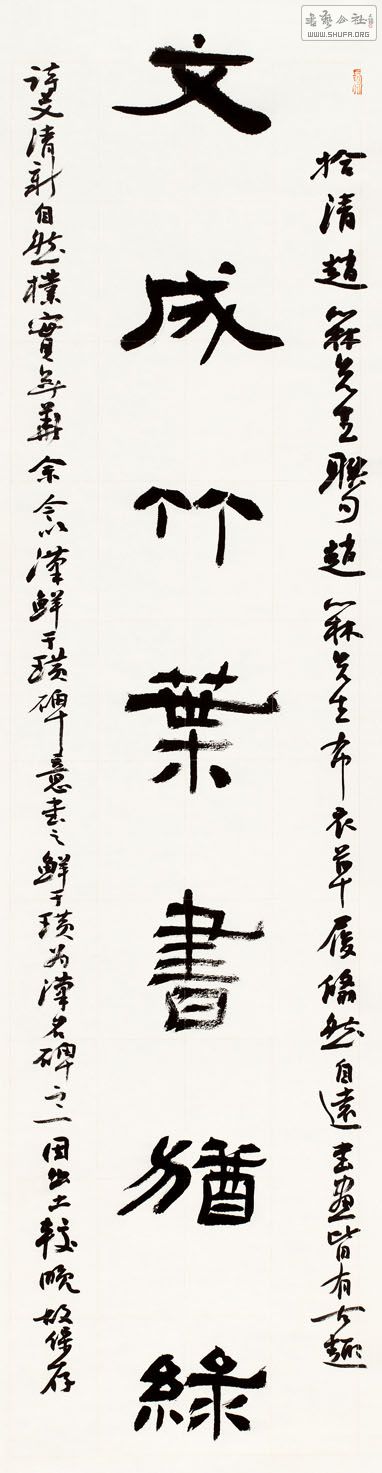 书艺公社
WWW.SHUFA.ORG
文成竹葉書猶綠
拾清趙先生聯句趙先生布衣草履翛然自遠書畫皆有古趣
詩文清新自然樸實無華余漢鮮于璜碑意書之鮮于璜為漢名碑之一因出土較晚故保存